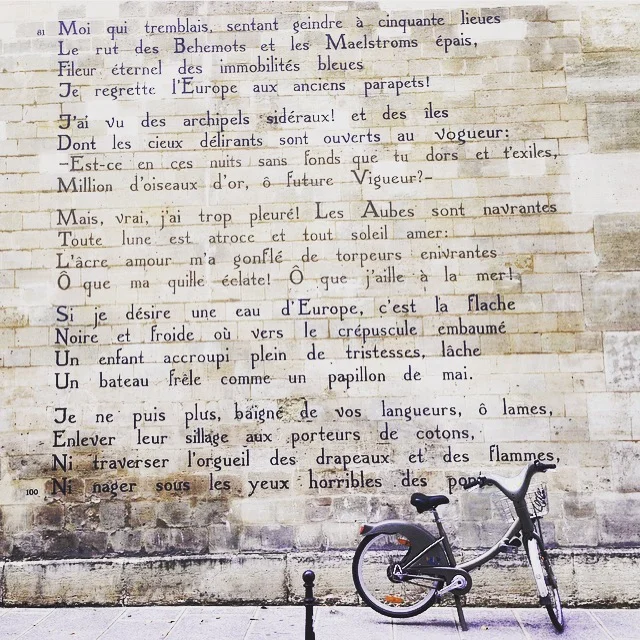 81 Moi qui tremblais, sentant geindre à cinquante lieues
Le rut des Behemots et les Maelstroms épais,
Fileur éternel des immobilités bleues
Je regrette l'Europe aux anciens parapets!
J'ai vu des archipels sidéraux! et des îles
Dont les cieux délirants sont ouverts au vogueur:
-Est-ce en ces nuits sans fonds que tu dors et t'exiles,
Million d'oiseaux d'or, ô future Vigueur?-
Mais, vrai, j'ai trop pleuré! Les Aubes sont navrantes
Toute lune est atroce et tout soleil amer:
L'âcre amour m'a gonflé de torpeurs enivrantes
Ô que ma quille éclate! Ô que j'aille à la mer!
Si je désire une eau d'Europe, c'est la flache
Noire et froide où vers le crépuscule embaumé
Un enfant accroupi plein de tristesses, lâche
Un bateau frêle comme un papillon de mai.
Je ne puis plus, baigné de vos langueurs, ô lames,
Enlever leur sillage aux porteurs de cotons,
Ni traverser l'orgueil des drapeaux et des flammes,
100 Ni nager sous les yeux horribles des